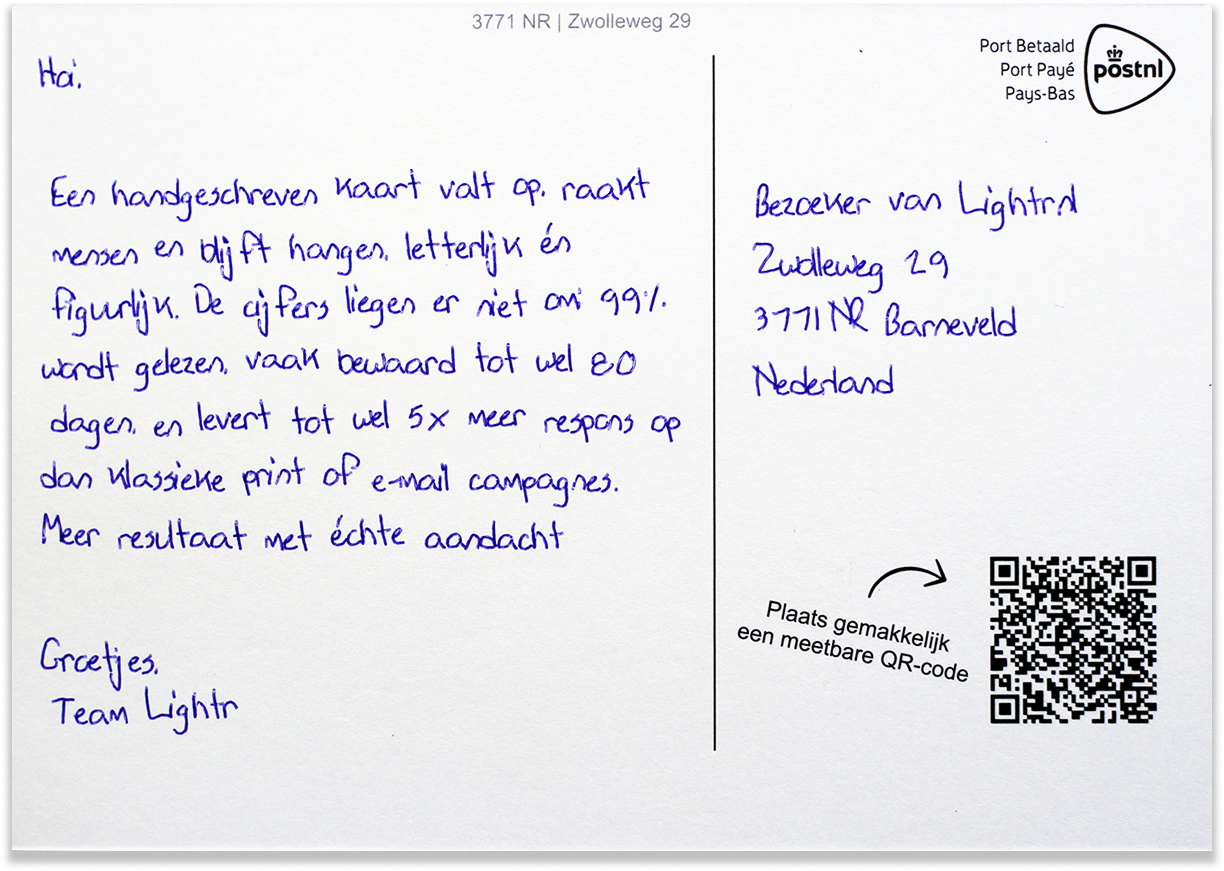 3771 NR | Zwolleweg 29
Port Betaald
Port Payé
Pays-Bas
postnl
Hai,
Een handgeschreven kaart valt op, raakt
mensen en blijft hangen, letterlijk én
figuurlijk. De cijfers liegen er niet om: 99%
wordt gelezen, vaak bewaard tot wel 80
dagen, en levert tot wel 5x meer respons op
dan klassieke print of e-mail campagnes.
Meer resultaat met échte aandacht
Groetjes,
Team Lightr
Bezoeker van Lightr.nl
Zwolleweg 29
3771 NR Barneveld
Nederland
Plaats gemakkelijk
een meetbare QR-code